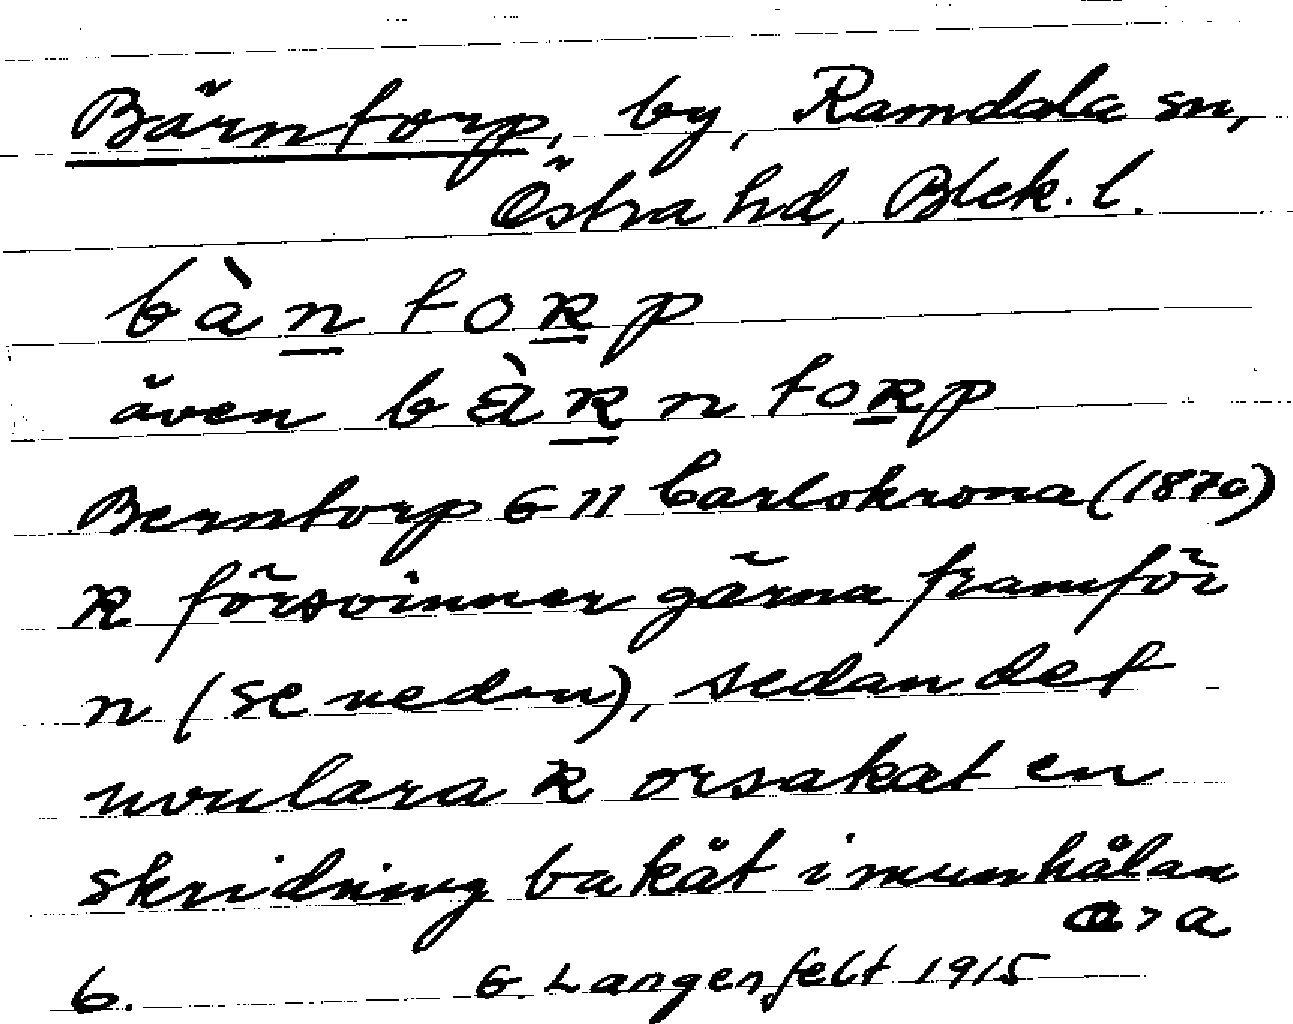 Bärntorp, by, Ramdala sn,
Östra hd, Blek. l.
bàn torp
även bàrn torp
Berntorp G 11 Carlskrona (1870)
R försvinner gärna framför
n (se nedan), sedan det
uvulara R orsakat en
skridning bakåt i munhålan
a > a
b. G. Langenfelt 1915